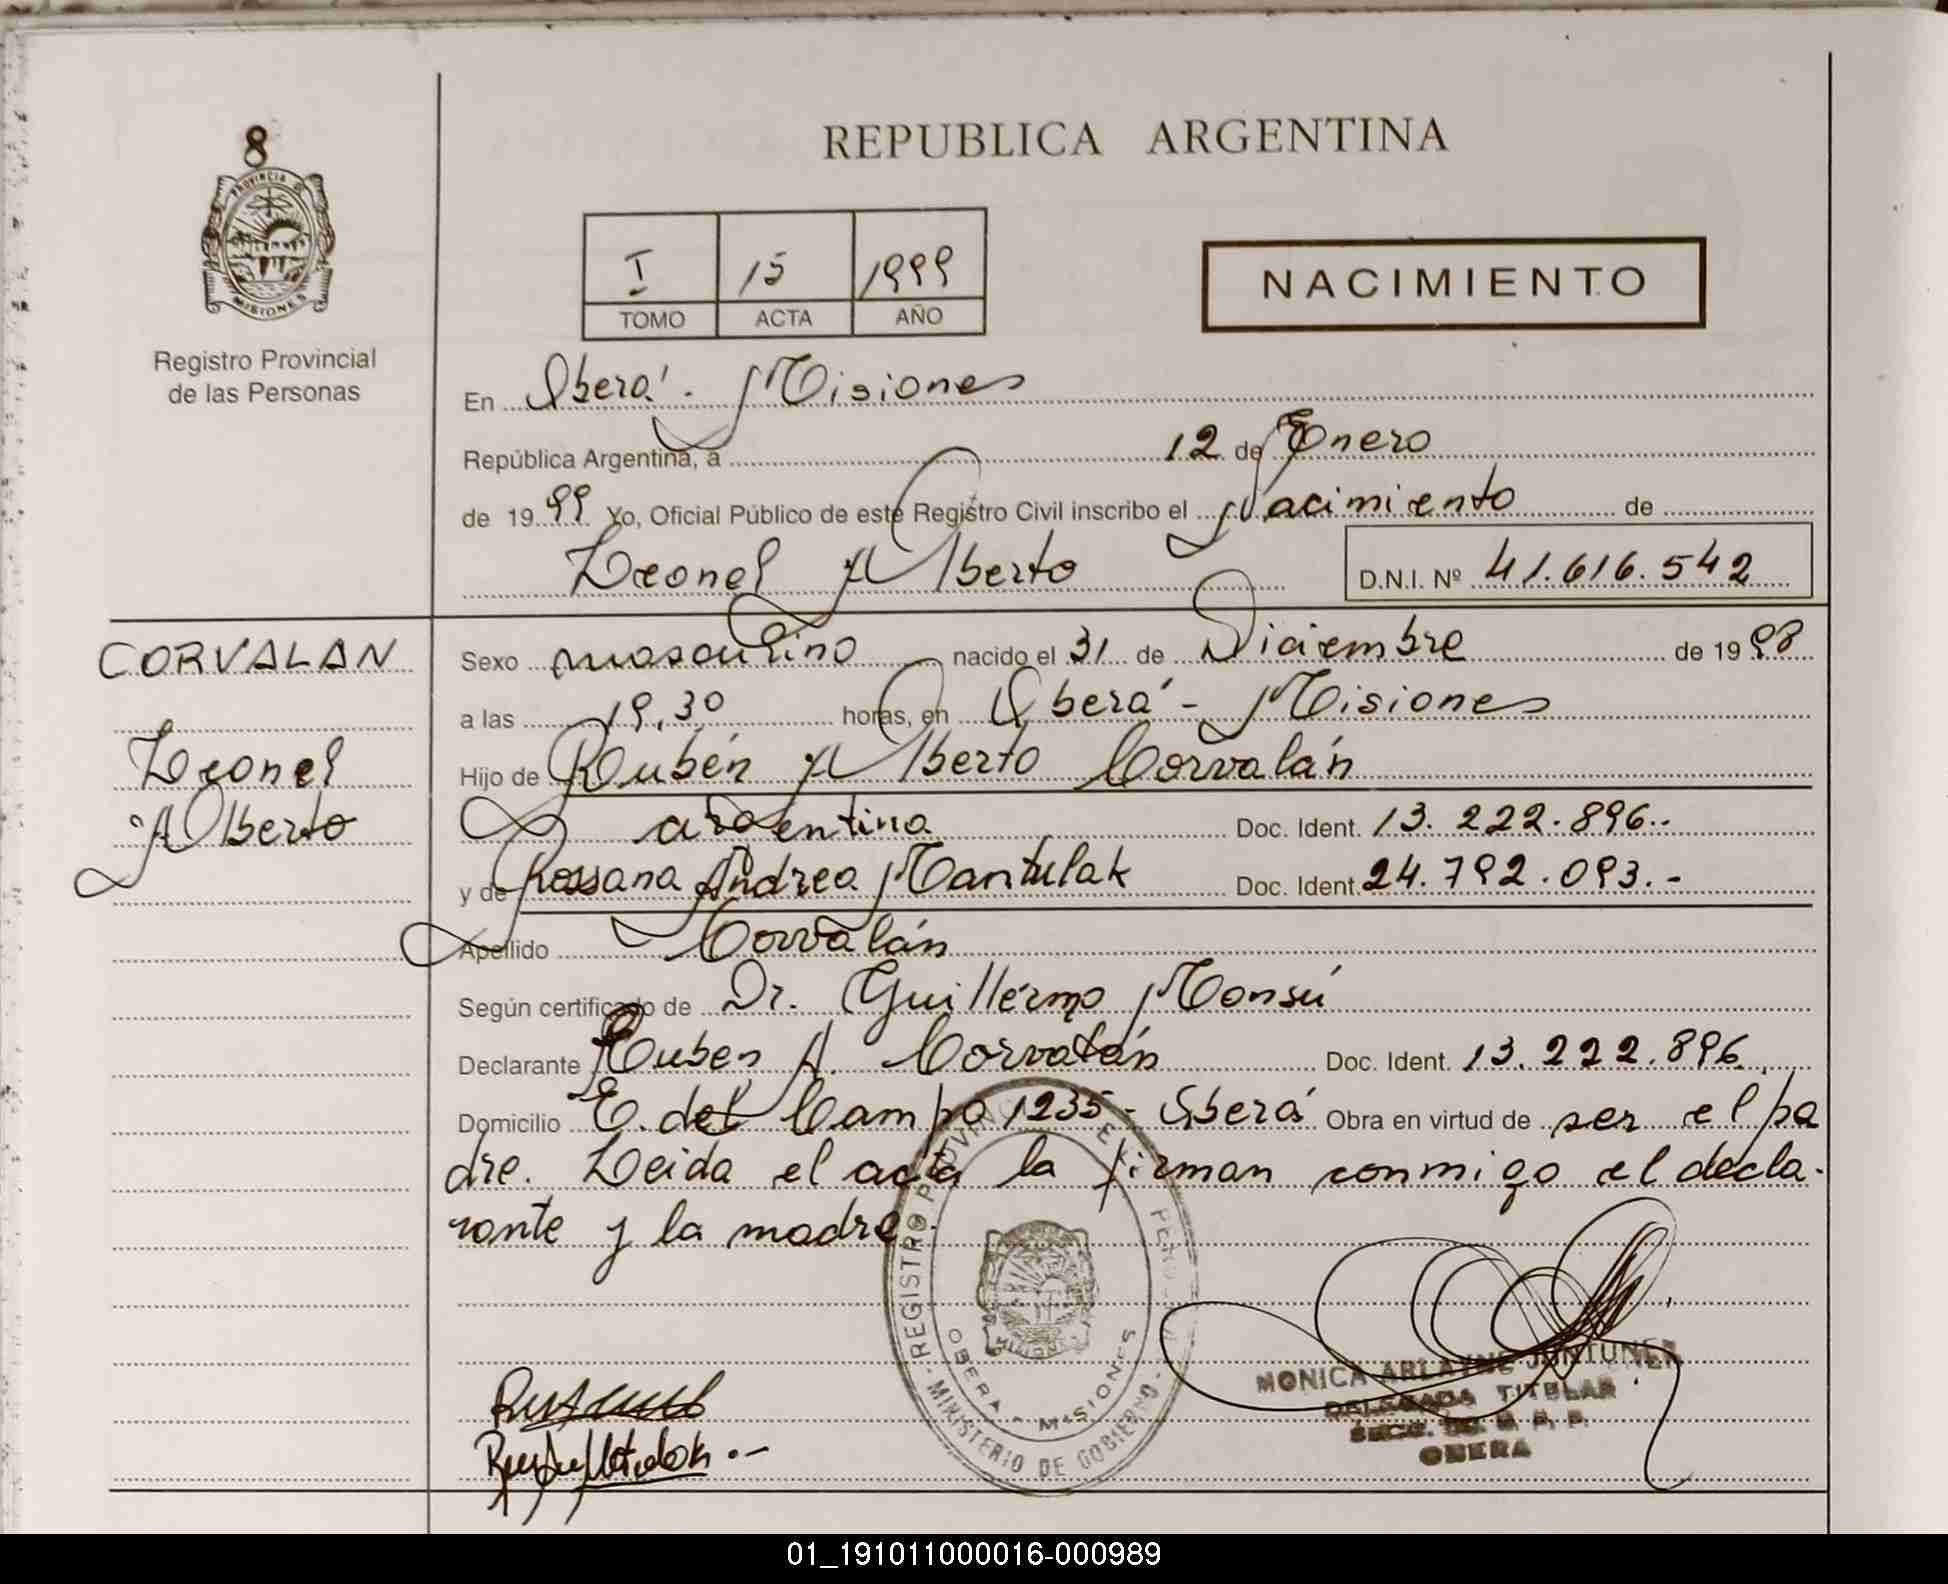 8
PROVINCIA DE
MISIONES
Registro Provincial
de las Personas
REPUBLICA ARGENTINA
I 15 1999
TOMO ACTA AÑO
NACIMIENTO
En Oberá - Misiones
República Argentina, a 12 de Enero
de 1999 Yo, Oficial Público de este Registro Civil inscribo el Nacimiento de
Leonel Alberto D.N.I. Nº 41.616.542
CORVALAN
Leonel
Alberto
Sexo masculino nacido el 31 de Diciembre de 1998
a las 19,30 horas, en Oberá - Misiones
Hijo de Rubén Alberto Corvalán
argentina Doc. Ident. 13.222.896.-
y de Rossana Andrea Mantulak Doc. Ident. 24.792.093.-
Apellido Corvalán
Según certificado de Dr. Guillermo Monsú
Declarante Ruben A. Corvalán Doc. Ident. 13.222.896
Domicilio E. del Campo 1235 - Oberá Obra en virtud de ser el pa
dre. Leida el acta la firman conmigo el decla-
rante y la madre.
REGISTRO PROVINCIAL
OBERA - MISIONES
MISIONES
- MINISTERIO DE GOBIERNO -
MONICA
DELEGADA TITULAR
OBERA
01_191011000016-000989